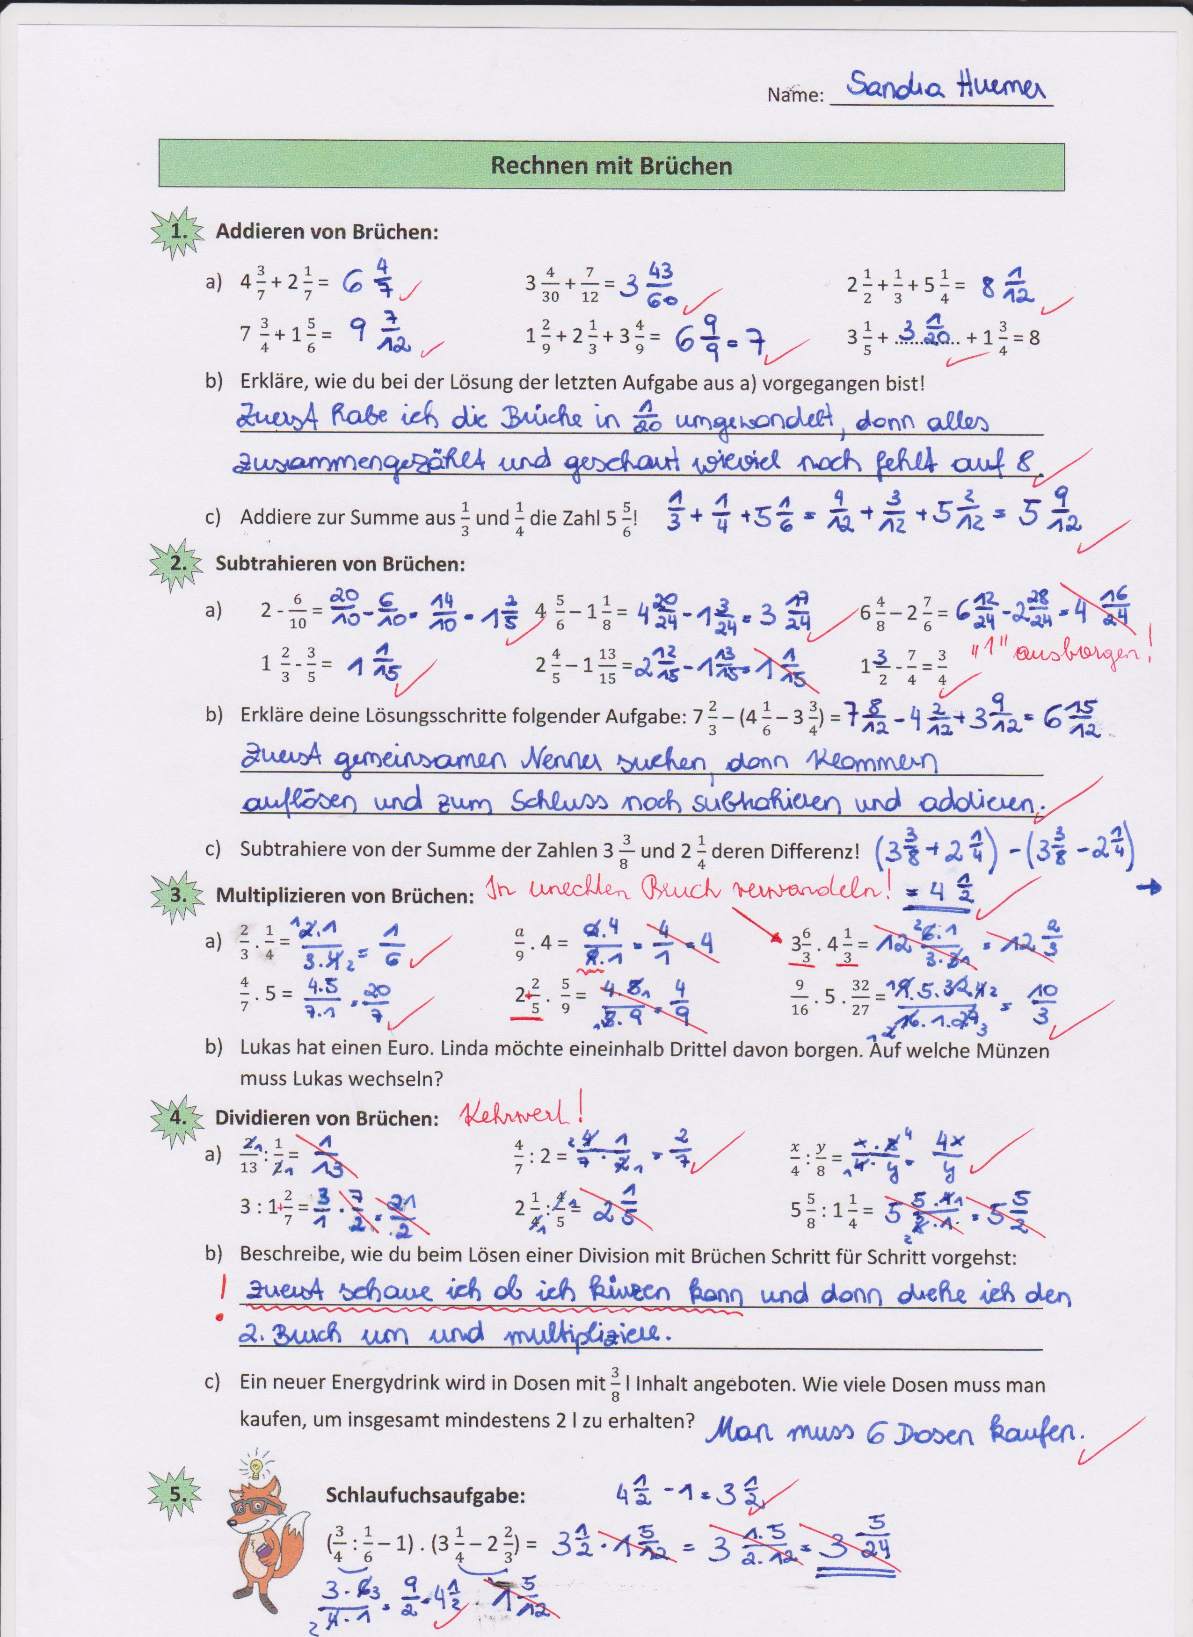 Name: Sandra Huemer
Rechnen mit Brüchen
1. Addieren von Brüchen:
a) 4 3/7 + 2 1/7 = 6 4/7 ✓ 3 4/30 + 7/12 = 3 43/60 ✓ 2 1/2 + 1/3 + 5 1/4 = 8 1/12 ✓
7 3/4 + 1 5/6 = 9 7/12 ✓ 1 2/9 + 2 1/3 + 3 4/9 = 6 9/9 = 7 ✓ 3 1/5 + ...3 1/20... + 1 3/4 = 8 ✓
b) Erkläre, wie du bei der Lösung der letzten Aufgabe aus a) vorgegangen bist!
Zuerst habe ich die Brüche in 1/20 umgewandelt, dann alles
zusammengezählt und geschaut wieviel noch fehlt auf 8. ✓
c) Addiere zur Summe aus 1/3 und 1/4 die Zahl 5 5/6! 1/3 + 1/4 + 5 1/6 = 4/12 + 3/12 + 5 2/12 = 5 9/12 ✓
2. Subtrahieren von Brüchen:
a) 2 - 6/10 = 20/10 - 6/10 = 14/10 = 1 2/5 ✓ 4 5/6 - 1 1/8 = 4 20/24 - 1 3/24 = 3 17/24 ✓ 6 4/8 - 2 7/6 = 6 12/24 - 2 28/24 = 4 16/24
1 2/3 - 3/5 = 1 1/15 ✓ 2 4/5 - 1 13/15 = 2 12/15 - 1 13/15 = 1 1/15 1 3/2 - 7/4 = 3/4 ✓ "1" ausborgen!
b) Erkläre deine Lösungsschritte folgender Aufgabe: 7 2/3 - (4 1/6 - 3 3/4) = 7 8/12 - 4 2/12 + 3 9/12 = 6 15/12
Zuerst gemeinsamen Nenner suchen, dann Klammern
auflösen und zum Schluss noch subtrahieren und addieren. ✓
c) Subtrahiere von der Summe der Zahlen 3 3/8 und 2 1/4 deren Differenz! (3 3/8 + 2 1/4) - (3 3/8 - 2 1/4)
3. Multiplizieren von Brüchen: In unechten Bruch verwandeln! = 4 1/2 ✓ →
a) 2/3 . 1/4 = 1 2.1/3.4 2 = 1/6 ✓ a/9 . 4 = a.4/9.1 = 4/1 = 4 3 6/3 . 4 1/3 = 12 2 6.1/3.3 1 = 12 2/3
4/7 . 5 = 4.5/7.1 = 20/7 ✓ 2 + 2/5 . 5/9 = 4.5 1/1 5.9 = 4/9 9/16 . 5 . 32/27 = 1 9.5.32 4 2/1 2 16.1.27 3 = 10/3 ✓
b) Lukas hat einen Euro. Linda möchte eineinhalb Drittel davon borgen. Auf welche Münzen
muss Lukas wechseln?
4. Dividieren von Brüchen: Kehrwert!
a) 2 1/13 : 1/2 1 = 1/13 4/7 : 2 = 2 4 . 1/7 . 2 1 = 2/7 ✓ x/4 : y/8 = x . 8 2/1 4 . y = 4x/y ✓
3 : 1 + 2/7 = 3/1 . 7/2 = 21/2 2 1/4 1 : 4 1/5 = 2 1/5 5 5/8 : 1 1/4 = 5 5.4 1/2 8.1 = 5 5/2
b) Beschreibe, wie du beim Lösen einer Division mit Brüchen Schritt für Schritt vorgehst:
! Zuerst schaue ich ob ich kürzen kann und dann drehe ich den
2. Bruch um und multipliziere.
c) Ein neuer Energydrink wird in Dosen mit 3/8 l Inhalt angeboten. Wie viele Dosen muss man
kaufen, um insgesamt mindestens 2 l zu erhalten? Man muss 6 Dosen kaufen. ✓
5. Schlaufuchsaufgabe: 4 1/2 - 1 = 3 1/2 ✓
(3/4 : 1/6 - 1) . (3 1/4 - 2 2/3) = 3 1/2 . 1 5/12 = 3 1.5/2.12 = 3 5/24
3 . 6 3/2 4 . 1 = 9/2 = 4 1/2 ✓ 1 5/12